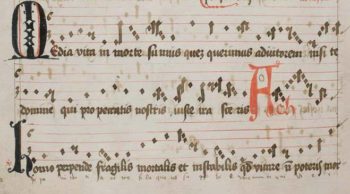 Media vita in morte sumus quez querimus adiutorem nisi te
domine qui pro peccatis nostris iuste ira sceris Ach
homo perpende fragilis mortalis et instabilis qd viuere nō poteris mor